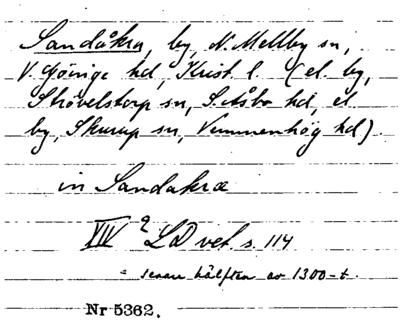 Sandåkra, by, N. Mellby sn,
V. Göinge hd, Krist. l. (el. by,
Strövelstorp sn, S. Åsbo hd, el.
by, Skurup sn, Vemmenhög hd).
in Sandakræ
XIV 2 LD vet. s. 114
= senare hälften av 1300-t.
Nr 5362.